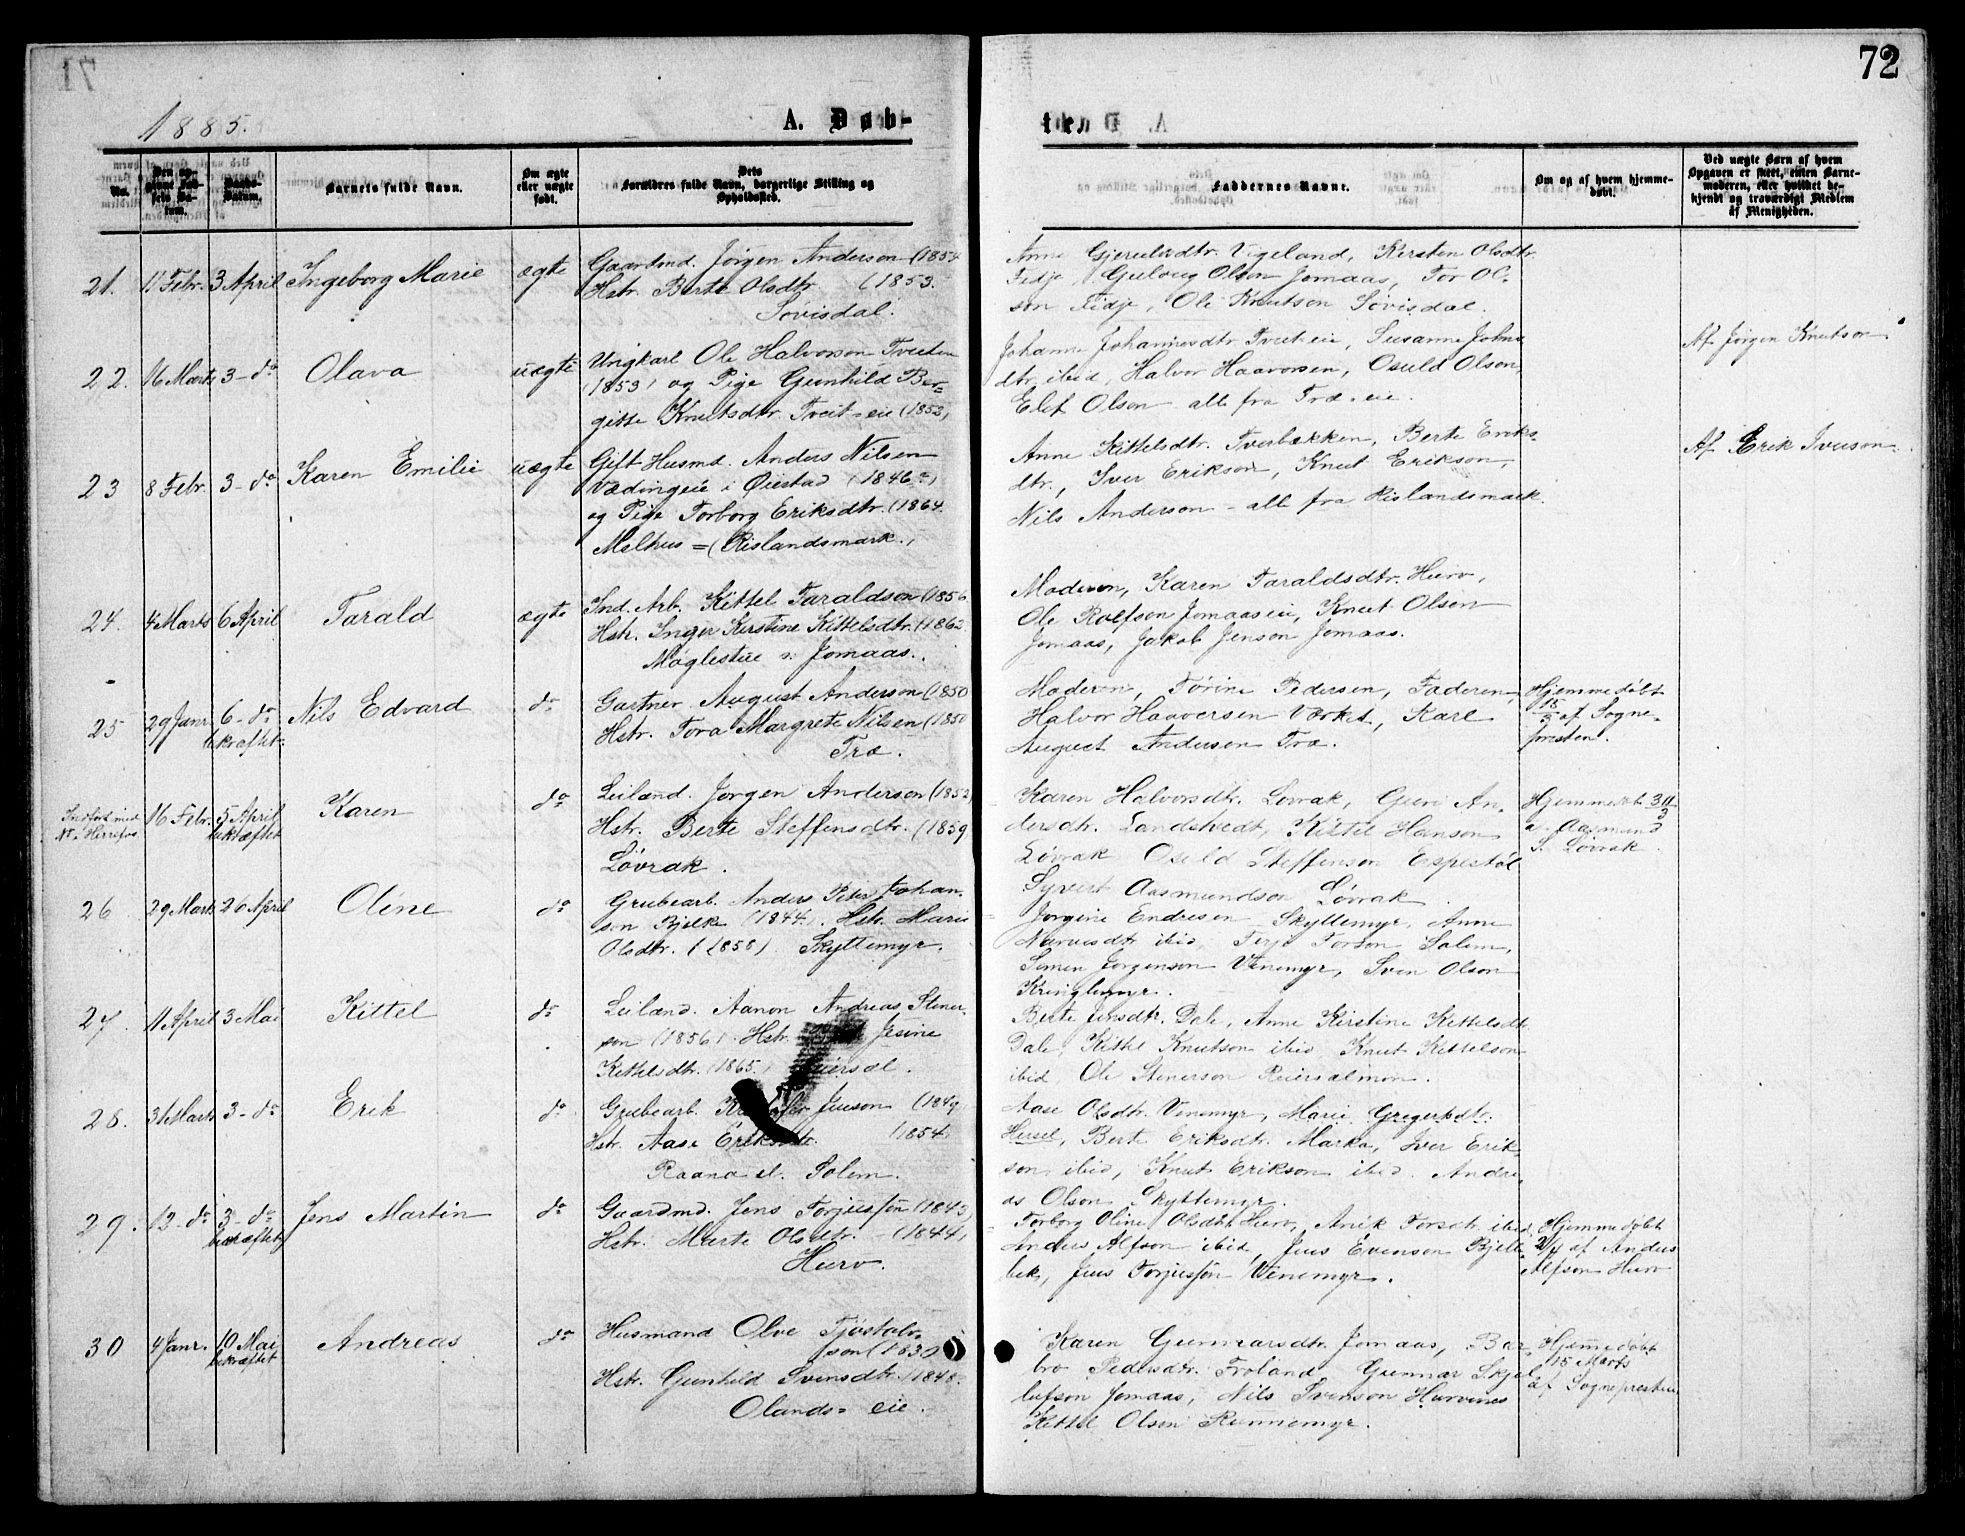 72
1885.
A. Døb-
ten
No.
Den opgivne Fødsels Datum.
Daabs-Datum.
Barnets fulde Navn.
Om ægte eller uægte født.
Dets
Forældres fulde Navn, borgerlige Stilling og
Opholdssted.
Faddernes Navne.
Om og af hvem hjemme-
døbt.
Ved uægte Børn af hvem
Opgaven er skeet, enten Barne-
moderen, eller hvilket be-
kjendt og troværdigt Medlem
af Menigheden.
21. 11 Febr. 3 April Ingeborg Marie ægte
Gaardmd. Jörgen Anderson (1854
Hstr. Berte Olsdtr (1853.
Sovisdal.
Anne Gjeruldsdtr. Vigeland, Kirsten Olsdtr.
Fidje, Guloug Olson Jomaas, Tor Ol-
son Fidje, Ole Knutson Sövisdal.
22. 16 Marts 3 - do Olava uægte
Ungkarl Ole Halvorson Tveiten
(1853) og Pige Gunhild Ber-
gitte Knutsdtr. Treit-eie (1853)
Johanne Johannesdtr Treit eie, Susanne Johns
dtr. ibid, Halvor Haavorsen, Osuld Olson,
Elef Olson alle fra Træ-eie.
Af Jörgen Knutson
23 8 Febr. 3 - do Karen Emilie uægte
Gift Husmd. Anders Nilsen
Vædingeie i Øiestad (1846)
og Pige Torborg Eriksdtr. (1864.
Melhus = (Rislandsmark.)
Anne Kittelsdtr. Tverbækken, Berte Eriks-
dtr., Iver Erikson, Knut Erikson,
Nils Anderson - alle fra Rislandsmark.
Af Erik Iverson
24. 4 Marts 6 April Tarald ægte
Ind. Arb. Kittel Taraldson (1856
Hstr. Inger Kirstine Kittelsdtr. (1862
Møglestue v. Jomaas.
Moderen, Karen Taraldsdtr. Hurv,
Ole Rolfson Jomaaseie, Knut Olson
Jomaas, Jakob Jenson Jomaas.
25 29 Janr. 6 - do Nils Edvard do
bekræftet
Gartner August Anderson (1850
Hstr. Tora Margrete Nilsen (1850
Træ.
Moderen, Törine Pedersen, Faderen,
Halvor Haaversen Værket, Karl
August Anderson Træ.
Hjemmedøbt
15/3 af Sogne-
presten.
Indført med
No. Herefos
16 Febr. 5 April Karen do
bekræftet
Leilænd. Jørgen Anderson (1852)
Hstr. Berte Steffensdtr. (1859
Lövrak.
Karen Halvorsdtr. Lövrak, Guri An-
dersdtr. Landstvedt, Kittil Hanson
Lövrak Osuld Steffenson Espestöl
Syvert Aasmundson Lövrak.
a. Aasmund
S. Lövrak.
26 29 Marts 26 April Oline do
Grubearb. Anders Peter Johan-
son Bjelk (1844). Hstr. Marie
Olsdtr. (1858) Skyttemyr.
Jorgine Endresen Skyttemyr, Anne
ibid, Terje Torson Salem,
Jorgenson Venemyr, Sven Olson
Kringlemyr.
27. 11 April 3 Mai Kittel do
Leilænd. Aanon Andreas Stener-
son (1856). Hstr. Jesine
Kittelsdtr. (1865.)
Berte Jensdtr. Dale, Anne Kirstine Kittelsdtr.
Dale, Kittel Knutson ibid Knut Kittelson
ibid Ole Stenerson Reiersølmon.
28. 31 Marts 3 - do Erik do
Grubearb. Juuson (1849
Hstr. Aase Eriksdtr. (1854)
Raana el. Solem.
Aase Olsdtr. Venemyr, Marie Gregersdtr.
Heisel, Berte Eriksdtr. Marka, Iver Erik-
son ibid, Knut Erikson ibid. Andre-
as Olson Skyttemyr.
29. 13 - do 3 - do Jens Martin do
bekræftet
Gaardmd. Jens Torjusson (1843)
Hstr. Marte Olsdtr. (1844)
Hurv.
Torborg Oline Olsdtr. Hurv, Anik Torsdtr. ibid
Anders Alfson ibid, Juus Evenson Bjelle-
bek, Juus Torjusson Venemyr.
Hjemmedøbt
2/4 af Anders
Alfson Hurv
30 4 Janr. 10 Mai Andreas do
bekræftet
Husmand Olve Tjöstolv-
son (1830)
Hstr. Gunhild Svensdtr. (1848.
Olands-eie.
Karen Gunnarsdtr. Jomaas, Bar-
bro Pedersdtr. Froland, Gunnar Skjel-
lufson Jomaas, Nils Svenson Hurvenes
Kittel Olson Runnemyr.
Hjemmedøbt
15 Marts
af Sognepresten